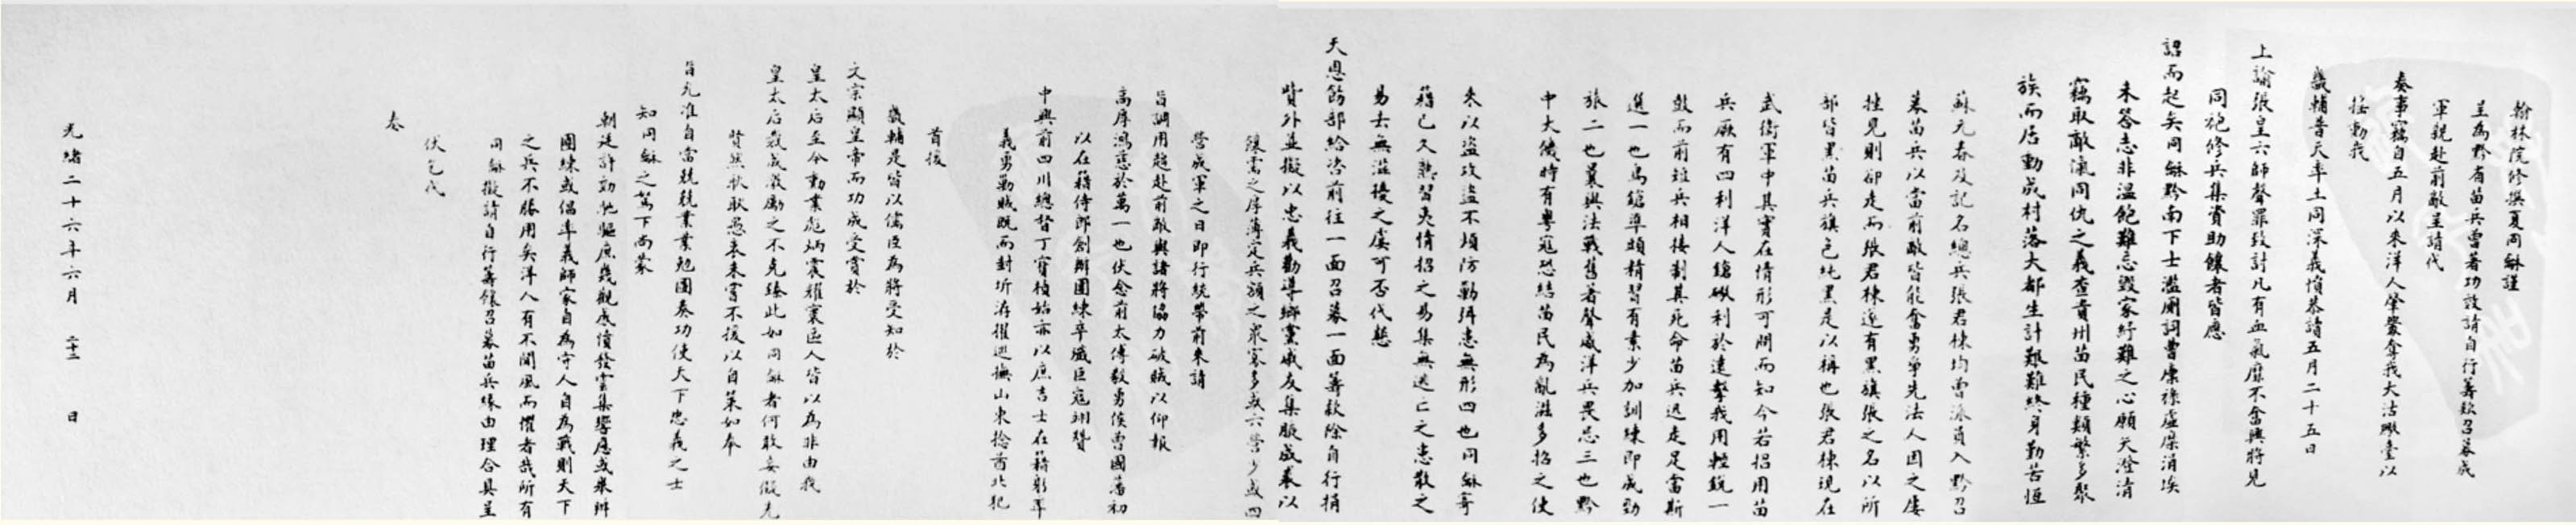 翰林院修撰夏同龢謹
呈為黔省苗兵曾著功效請自行籌款召募成
軍親赴前敵呈請代
奏事竊自五月以來洋人肇釁奪我大沽礮臺以
搖動我
畿輔普天率土同深義憤恭讀五月二十五日
上諭張皇六師聲罪致討凡有血氣靡不奮興將見
同袍修兵集資助餉者皆應
詔而起矣同龢黔南下士濫廁詞曹康祿虛糜消埃
未答志非溫飽難忘毀家紓難之心願矢澄清
竊取敵愾同仇之義查貴州苗民種類繁多聚
族而居動成村落大都生計艱難終身勤苦恒
蘇元春及記名總兵張君棟均曾派員入黔召
募苗兵以當前敵皆能奮勇爭先法人因之屢
挫見則卻走而張君棟遂有黑旗張之名以所
部皆黑苗兵旗色純黑是以稱也張君棟現在
武衛軍中其實在情形可問而知今若招用苗
兵厥有四利洋人鎗礮利於遠擊我用輕銳一
鼓而前短兵相接制其死命苗兵迅走足當斯
選一也鳥鎗準頭精習有素少加訓練即成勁
旅二也曩與法戰舊著聲威洋兵畏忌三也黔
中大僟時有粵寇恐結苗民為亂滋多招之使
來以盜攻盜不煩防勦弭患無形四也同龢寄
籍已久熟習夷情招之易集無逃亡之患散之
易去無滋擾之虞可否代懇
天恩飭部給咨前往一面召募一面籌款除自行捐
貲外並擬以忠義勸導鄉黨戚友集腋成裘以
釀需之厚薄定兵額之衆寡多或六營少或四
營成軍之日即行統帶前來請
旨調用趨赴前敵與諸將協力破賊以仰報
高厚鴻慈於萬一也伏念前太傅毅勇侯曾國藩初
以在籍侍郎創辦團練卒殲巨寇翊贊
中興前四川總督丁寶楨始亦以庶吉士在籍彰率
義勇勦賊既而封圻洊擢巡撫山東捻酋北犯
首援
畿輔是皆以儒臣為將受知於
文宗顯皇帝而功成受賞於
皇太后至今勳業彪炳震耀寰區人皆以為非由我
皇太后裁成激勵之不克臻此如同龢者何敢妄儗先
賢然狄耿愚衷未嘗不援以自策如奉
旨允准自當兢兢業業勉圖奏功使天下忠義之士
知同龢之駑下尚蒙
朝廷許効馳驅庶幾觀感憤發雲集響應或舉辦
團練或倡率義師家自為守人自為戰則天下
之兵不勝用矣洋人有不聞風而懼者哉所有
同龢擬請自行籌餉召募苗兵緣由理合具呈
伏乞代
奏
光緒二十六年六月 二十二 日